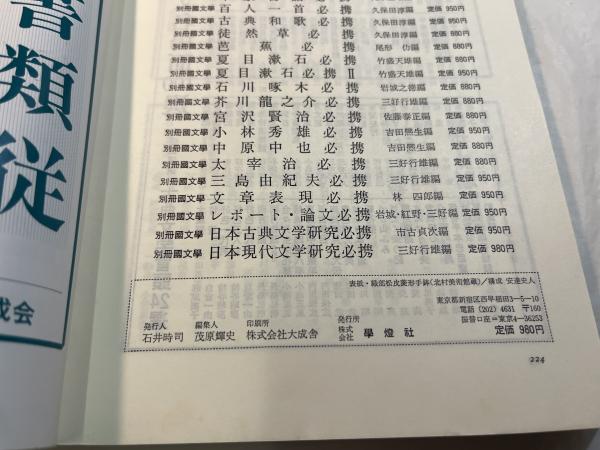 書類従
成会
別冊國文學 百人一首必携 久保田淳編 定価 950円
別冊國文學 古典和歌必携 久保田淳編 定価 950円
別冊國文學 徒然草必携 久保田淳編 定価 880円
別冊國文學 芭蕉必携 尾形仂編 定価 880円
別冊國文學 夏目漱石必携 竹盛天雄編 定価 880円
別冊國文學 夏目漱石必携Ⅱ 竹盛天雄編 定価 950円
別冊國文學 石川啄木必携 岩城之徳編 定価 880円
別冊國文學 芥川龍之介必携 三好行雄編 定価 880円
別冊國文學 宮沢賢治必携 佐藤泰正編 定価 880円
別冊國文學 小林秀雄必携 吉田凞生編 定価 880円
別冊國文學 中原中也必携 吉田凞生編 定価 950円
別冊國文學 太宰治必携 三好行雄編 定価 880円
別冊國文學 三島由紀夫必携 三好行雄編 定価 950円
別冊國文學 文章表現必携 林四郎編 定価 950円
別冊國文學 レポート・論文必携 岩城・紅野・三好編 定価 950円
別冊國文學 日本古典文学研究必携 市古貞次編 定価 950円
別冊國文學 日本現代文学研究必携 三好行雄編 定価 980円
表紙・緞部松皮菱形手鉢(北村美術館蔵)/構成 安達史人
発行人 石井時司
編集人 茂原輝史
印刷所 株式会社大成舎
発行所 株式会社 學燈社
東京都新宿区西早稲田3-5-10
電話(202)4631 〒160
振替口座=東京4-36253
定価 980円
224